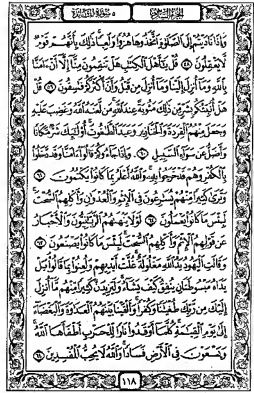 الجزء السادس سورة المائدة ٥
وَإِذَا نَادَيْتُمْ إِلَى ٱلصَّلَوٰةِ ٱتَّخَذُوهَا هُزُوًا وَلَعِبًا ذَٰلِكَ بِأَنَّهُمْ قَوْمٌ
لَّا يَعْقِلُونَ ٥٨ قُلْ يَٰٓأَهْلَ ٱلْكِتَٰبِ هَلْ تَنقِمُونَ مِنَّآ إِلَّآ أَنْ ءَامَنَّا
بِٱللَّهِ وَمَآ أُنزِلَ إِلَيْنَا وَمَآ أُنزِلَ مِن قَبْلُ وَأَنَّ أَكْثَرَكُمْ فَٰسِقُونَ ٥٩ قُلْ
هَلْ أُنَبِّئُكُم بِشَرٍّ مِّن ذَٰلِكَ مَثُوبَةً عِندَ ٱللَّهِ مَن لَّعَنَهُ ٱللَّهُ وَغَضِبَ عَلَيْهِ
وَجَعَلَ مِنْهُمُ ٱلْقِرَدَةَ وَٱلْخَنَازِيرَ وَعَبَدَ ٱلطَّٰغُوتَ أُو۟لَٰٓئِكَ شَرٌّ مَّكَانًا
وَأَضَلُّ عَن سَوَآءِ ٱلسَّبِيلِ ٦٠ وَإِذَا جَآءُوكُمْ قَالُوٓا۟ ءَامَنَّا وَقَد دَّخَلُوا۟
بِٱلْكُفْرِ وَهُمْ قَدْ خَرَجُوا۟ بِهِۦ وَٱللَّهُ أَعْلَمُ بِمَا كَانُوا۟ يَكْتُمُونَ ٦١
وَتَرَىٰ كَثِيرًا مِّنْهُمْ يُسَٰرِعُونَ فِى ٱلْإِثْمِ وَٱلْعُدْوَٰنِ وَأَكْلِهِمُ ٱلسُّحْتَ
لَبِئْسَ مَا كَانُوا۟ يَعْمَلُونَ ٦٢ لَوْلَا يَنْهَىٰهُمُ ٱلرَّبَّٰنِيُّونَ وَٱلْأَحْبَارُ
عَن قَوْلِهِمُ ٱلْإِثْمَ وَأَكْلِهِمُ ٱلسُّحْتَ لَبِئْسَ مَا كَانُوا۟ يَصْنَعُونَ ٦٣
وَقَالَتِ ٱلْيَهُودُ يَدُ ٱللَّهِ مَغْلُولَةٌ غُلَّتْ أَيْدِيهِمْ وَلُعِنُوا۟ بِمَا قَالُوا۟ بَلْ
يَدَاهُ مَبْسُوطَتَانِ يُنفِقُ كَيْفَ يَشَآءُ وَلَيَزِيدَنَّ كَثِيرًا مِّنْهُم مَّآ أُنزِلَ
إِلَيْكَ مِن رَّبِّكَ طُغْيَٰنًا وَكُفْرًا وَأَلْقَيْنَا بَيْنَهُمُ ٱلْعَدَٰوَةَ وَٱلْبَغْضَآءَ
إِلَىٰ يَوْمِ ٱلْقِيَٰمَةِ كُلَّمَآ أَوْقَدُوا۟ نَارًا لِّلْحَرْبِ أَطْفَأَهَا ٱللَّهُ
وَيَسْعَوْنَ فِى ٱلْأَرْضِ فَسَادًا وَٱللَّهُ لَا يُحِبُّ ٱلْمُفْسِدِينَ ٦٤
١١٨